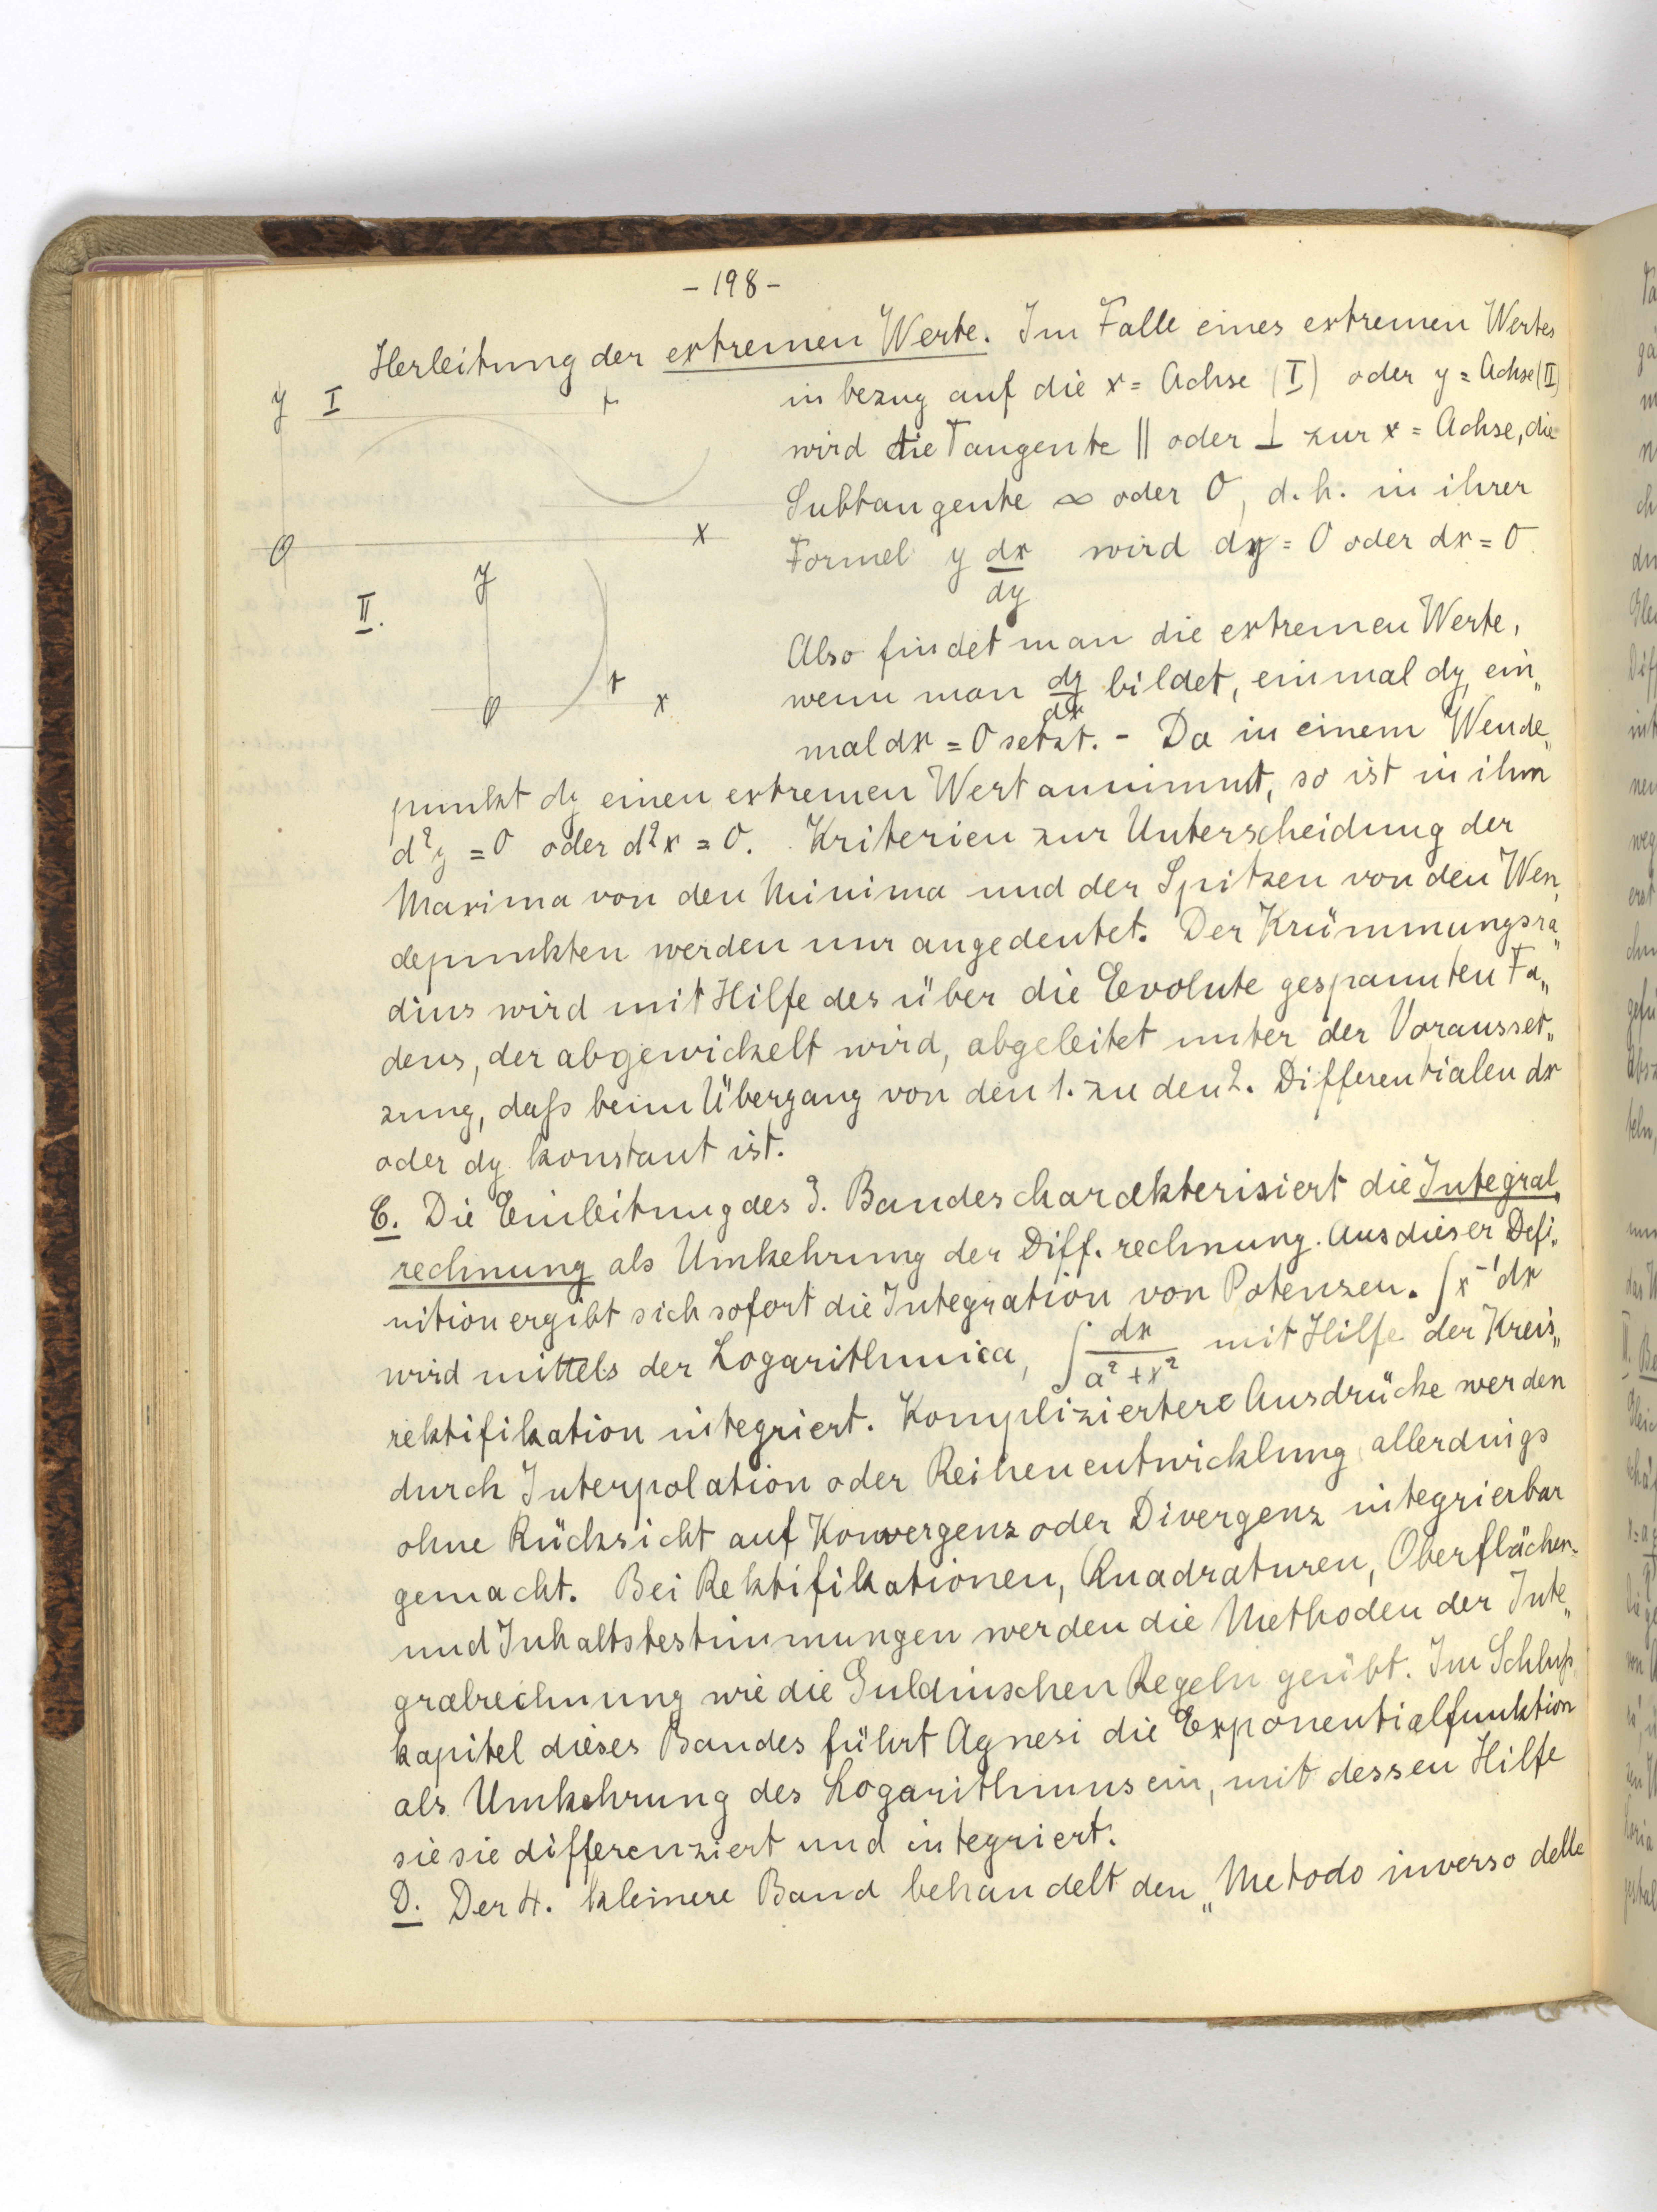 - 198 -
Herleitung der extremen Werte. Im Falle eines extremen Wertes
in bezug auf die x = Achse (I) oder y = Achse (II)
wird die Tangente || oder ⊥ zur x = Achse, die
Subtangente ∞ oder 0, d. h. in ihrer
Formel y dx/dy wird dy = 0 oder dx = 0.
y I t
O x
II. y
t
O x
Also findet man die extremen Werte,
wenn man dy/dx bildet, einmal dy, ein„
mal dx = 0 setzt. - Da in einem Wende„
punkt dy einen extremen Wert annimmt, so ist in ihm
d²y = 0 oder d²x = 0. Kriterien zur Unterscheidung der
Maxima von den Minima und der Spitzen von den Wen„
depunkten werden nur angedeutet. Der Krümmungsra„
dius wird mit Hilfe des über die Evolute gespannten Fa„
dens, der abgewickelt wird, abgeleitet unter der Vorausset„
zung, daß beim Übergang von den 1. zu den 2. Differentialen dx
oder dy konstant ist.
C. Die Einleitung des 3. Bandes charakterisiert die Integral„
rechnung als Umkehrung der Diff. rechnung. Aus dieser Defi„
nition ergibt sich sofort die Integration von Potenzen. ∫x⁻¹dx
wird mittels der Logarithmica, ∫dx/(a² + x²) mit Hilfe der Kreis„
rektifikation integriert. Kompliziertere Ausdrücke werden
durch Interpolation oder Reihenentwicklung allerdings
ohne Rücksicht auf Konvergenz oder Divergenz integrierbar
gemacht. Bei Rektifikationen, Quadraturen, Oberflächen=
und Inhaltsbestimmungen werden die Methoden der Inte„
gralrechnung wie die Guldinschen Regeln geübt. Im Schluß„
kapitel dieses Bandes führt Agnesi die Exponentialfunktion
als Umkehrung des Logarithmus ein, mit dessen Hilfe
sie sie differenziert und integriert.
D. Der 4. kleinere Band behandelt den „Metodo inverso delle